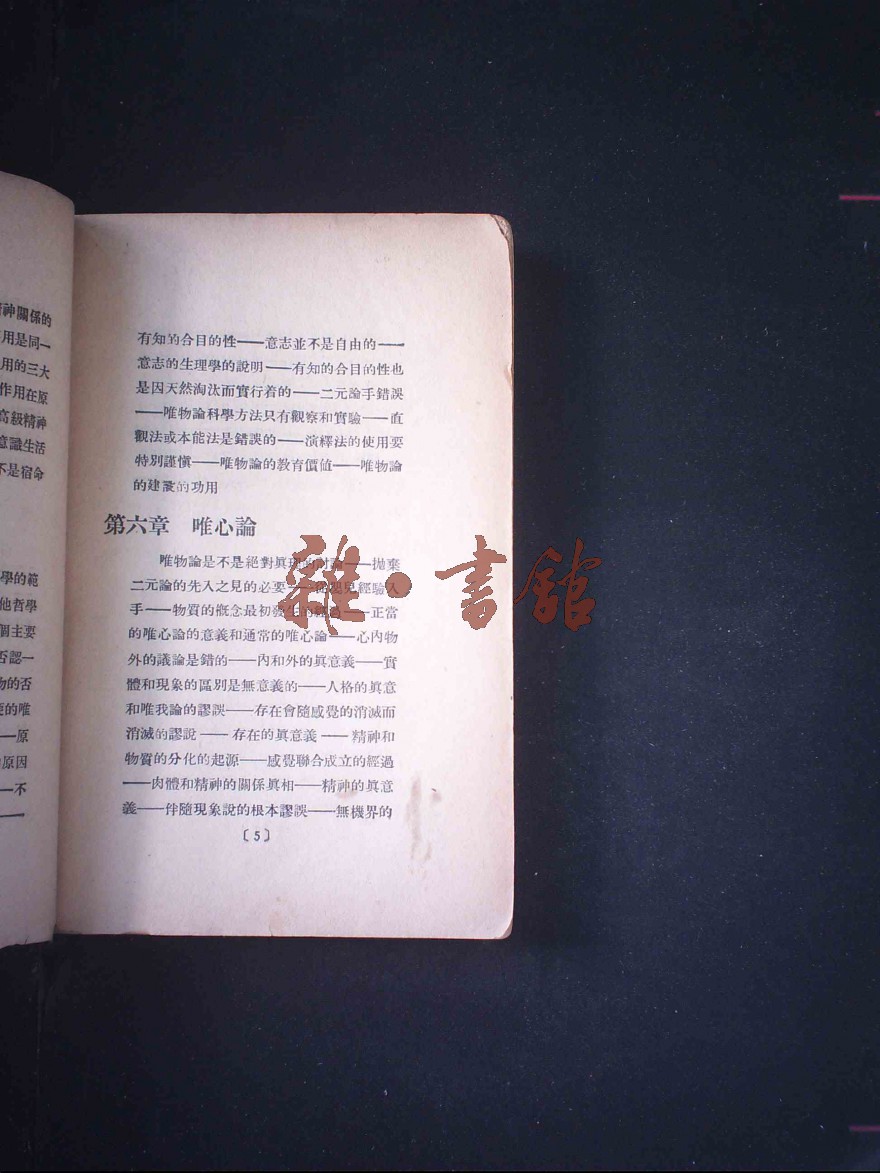 神關係的
用是同一
用的三大
作用在原
高級精神
意識生活
不是宿命
學的範
他哲學
個主要
否認一
物的否
的唯
——原
原因
——不
——
有知的合目的性——意志並不是自由的——
意志的生理學的說明——有知的合目的性也
是因天然淘汰而實行着的——二元論手錯誤
——唯物論科學方法只有觀察和實驗——直
觀法或本能法是錯誤的——演繹法的使用要
特別謹愼——唯物論的教育價値——唯物論
的建設的功用
第六章 唯心論
唯物論是不是絕對眞理的討論——拋棄
二元論的先入之見的必要——從嬰兒經驗入
手——物質的槪念最初發生的經過——正當
的唯心論的意義和通常的唯心論——心內物
外的議論是錯的——內和外的眞意義——實
體和現象的區別是無意義的——人格的眞意
和唯我論的謬誤——存在會隨感覺的消滅而
消滅的謬說——存在的眞意義——精神和
物質的分化的起源——感覺聯合成立的經過
——肉體和精神的關係眞相——精神的眞意
義——伴隨現象說的根本謬誤——無機界的
〔5〕
雜·書館